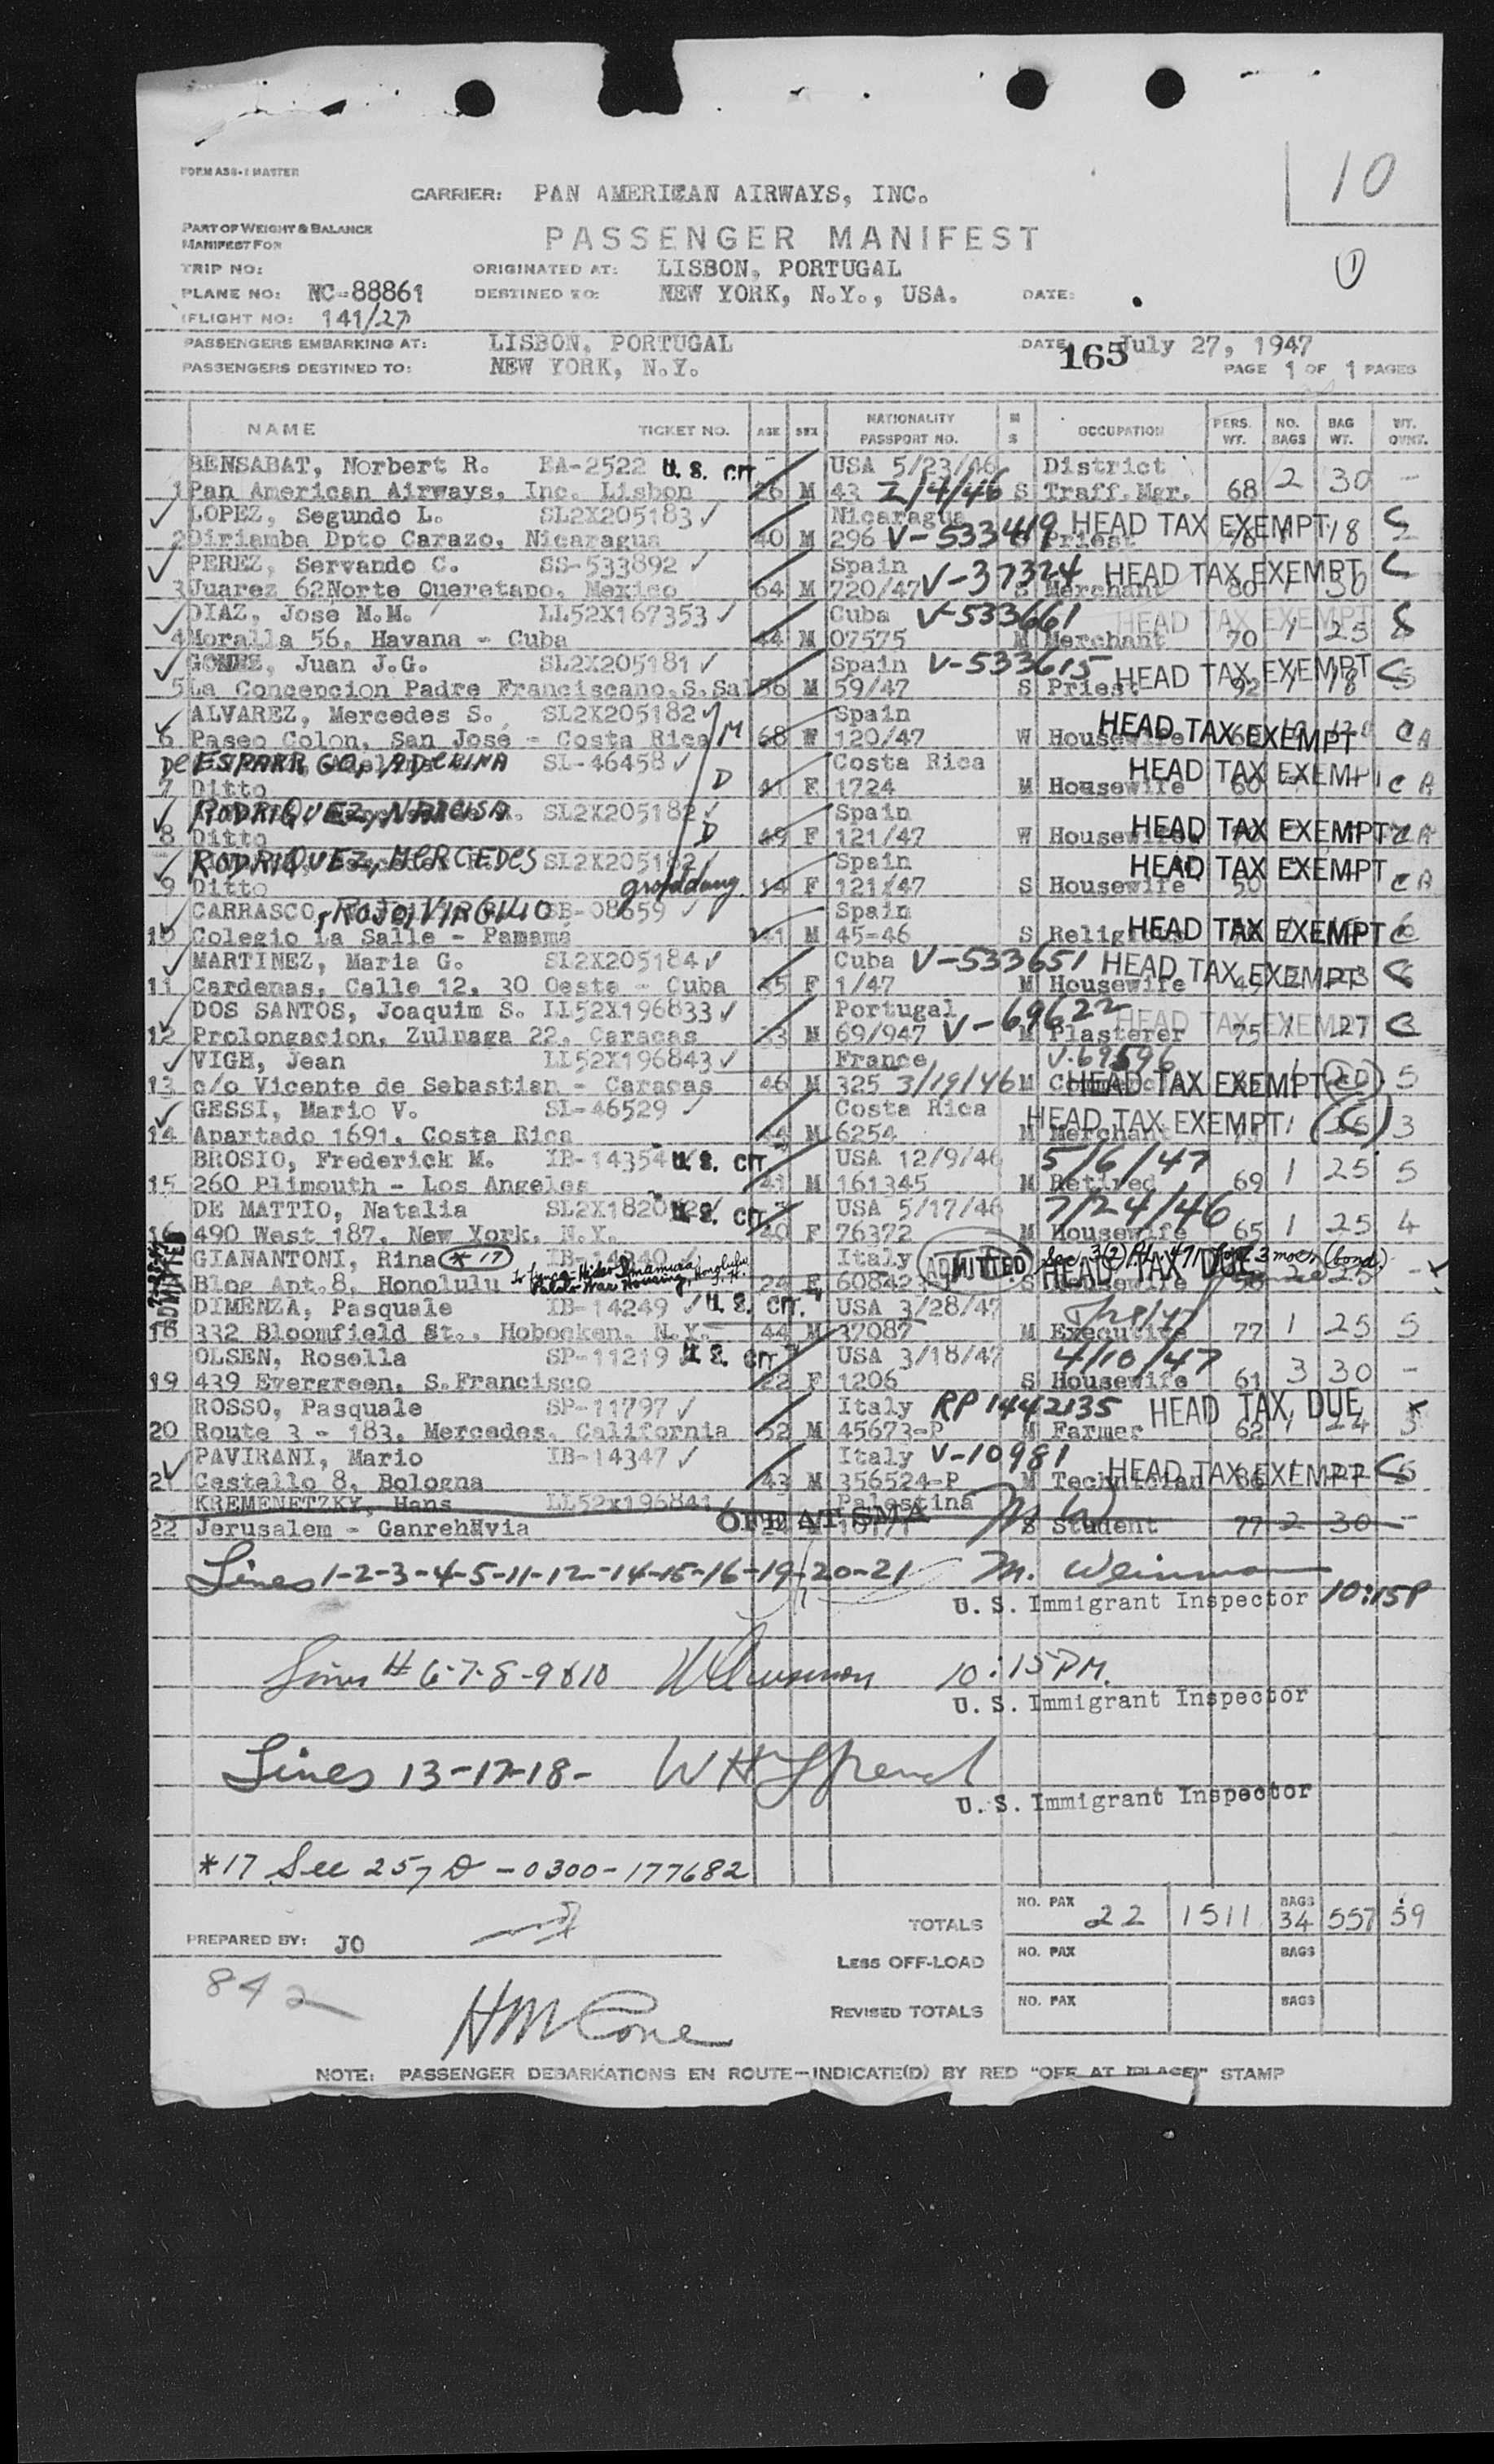 FORM ASB-1 MASTER
CARRIER: PAN AMERICAN AIRWAYS, INC.
10
PART OF WEIGHT & BALANCE
MANIFEST FOR
PASSENGER MANIFEST
TRIP NO: ORIGINATED AT: LISBON, PORTUGAL
PLANE NO: NC-88861 DESTINED TO: NEW YORK, N.Y., USA. DATE:
FLIGHT NO: 141/27
PASSENGERS EMBARKING AT: LISBON, PORTUGAL DATE: July 27, 1947
165
PASSENGERS DESTINED TO: NEW YORK, N.Y. PAGE 1 OF 1 PAGES
NAME TICKET NO. AGE SEX NATIONALITY PASSPORT NO. M S OCCUPATION PERS. WT. NO. BAGS BAG WT. WT. OVWT.
BENSABAT, Norbert R. EA-2522 U.S. CIT USA 5/23/46 District
1 Pan American Airways, Inc. Lisbon 26 M 43 2/4/46 S Traff. Mgr. 68 2 30 -
LOPEZ, Segundo L. SL2X205183 Nicaragua HEAD TAX EXEMPT C
2 Diriamba Dpto Carazo, Nicaragua 40 M 296 V-533419 Priest 18
PEREZ, Servando C. SS-533892 Spain HEAD TAX EXEMPT C
3 Juarez 62Norte Queretapo, Mexico 64 M 720/47 V-37324 Merchant 80 1 30
DIAZ, Jose M.M. LL52X167353 Cuba V-533661 HEAD TAX EXEMPT
4 Moralla 56, Havana - Cuba 44 M 07575 M Merchant 70 1 25
GOMEZ, Juan J.G. SL2X205181 Spain V-533615 HEAD TAX EXEMPT C
5 La Concepcion Padre Franciscano.S.Sal 56 M 59/47 S Priest 92 1 18 5
ALVAREZ, Mercedes S. SL2X205182 Spain HEAD TAX EXEMPT
6 Paseo Colon, San Jose - Costa Rica M 68 F 120/47 W Housewife C A
De ESPARRAGO, ADELINA SL-46458 Costa Rica HEAD TAX EXEMPT
7 Ditto D 41 F 1724 M Housewife 60 C A
RODRIQUEZ, NARCISA SL2X205182 Spain HEAD TAX EXEMPT
8 Ditto D 49 F 121/47 W Housewife C A
RODRIQUEZ, MERCEDES SL2X205182 Spain HEAD TAX EXEMPT
9 Ditto granddaug. 14 F 121/47 S Housewife 50 C A
CARRASCO, ROJO, VIRGILIO SB-08659 Spain
10 Colegio La Salle - Panama 41 M 45-46 S Religious HEAD TAX EXEMPT C
MARTINEZ, Maria G. SL2X205184 Cuba V-533651 HEAD TAX EXEMPT C
11 Cardenas, Calle 12, 30 Oeste - Cuba 35 F 1/47 M Housewife
DOS SANTOS, Joaquim S. LL52X196833 Portugal HEAD TAX EXEMPT
12 Prolongacion, Zulnaga 22, Caracas 33 M 69/947 V-69622 M Plasterer 75 1 27 C
VIGH, Jean LL52X196843 France V-69596
13 c/o Vicente de Sebastian - Caracas 46 M 325 3/19/46 M HEAD TAX EXEMPT 5
GESSI, Mario V. SL-46529 Costa Rica HEAD TAX EXEMPT
14 Apartado 1691, Costa Rica 44 M 6254 M Merchant C 3
BROSIO, Frederick M. IB-14354 U.S. CIT USA 12/9/46 5/6/47
15 260 Plimouth - Los Angeles 41 M 161345 M Retired 69 1 25 5
DE MATTIO, Natalia SL2X182012 U.S. CIT USA 5/17/46 7/24/46
16 490 West 187, New York, N.Y. 40 F 76372 M Housewife 65 1 25 4
GIANANTONI, Rina *17 IB-14240 Italy ADMITTED Sec 3(2) for 3 mos. (bond.)
ADMITTED Blog Apt.8, Honolulu 24 F 60842 S Housewife HEAD TAX DUE
DIMENZA, Pasquale IB-14249 U.S. CIT. USA 3/28/47
18 332 Bloomfield St., Hoboeken, N.Y. 44 M 37087 M Executive 77 1 25 5
OLSEN, Rosella SP-11219 U.S. CIT USA 3/18/47 4/10/47
19 439 Evergreen, S.Francisco 22 F 1206 S Housewife 61 3 30 -
ROSSO, Pasquale SP-11797 Italy RP 1442135 HEAD TAX DUE
20 Route 3 - 183, Mercedes, California 52 M 45673-P M Farmer 62 1 24 3
PAVIRANI, Mario IB-14347 Italy V-10981
21 Castello 8, Bologna 43 M 356524-P M Technician 86 HEAD TAX EXEMPT C
KREMENETZKY, Hans LL52x196841 Palestina
22 Jerusalem - GanrehHvia OFF AT SMA S Student 77 2 30 -
Lines 1-2-3-4-5-11-12-14-15-16-19-20-21 M. Weinman
U. S. Immigrant Inspector 10:15P
Lines # 6-7-8-9&10 10:15 PM.
U. S. Immigrant Inspector
Lines 13-17-18-
U. S. Immigrant Inspector
*17 See 257 D - 0300-177682
TOTALS NO. PAX 22 1511 BAGS 34 557 59
PREPARED BY: JO
LESS OFF-LOAD NO. PAX BAGS
842
REVISED TOTALS NO. PAX BAGS
HM Cone
NOTE: PASSENGER DEBARKATIONS EN ROUTE—INDICATE(D) BY RED "OFF AT (PLACE)" STAMP